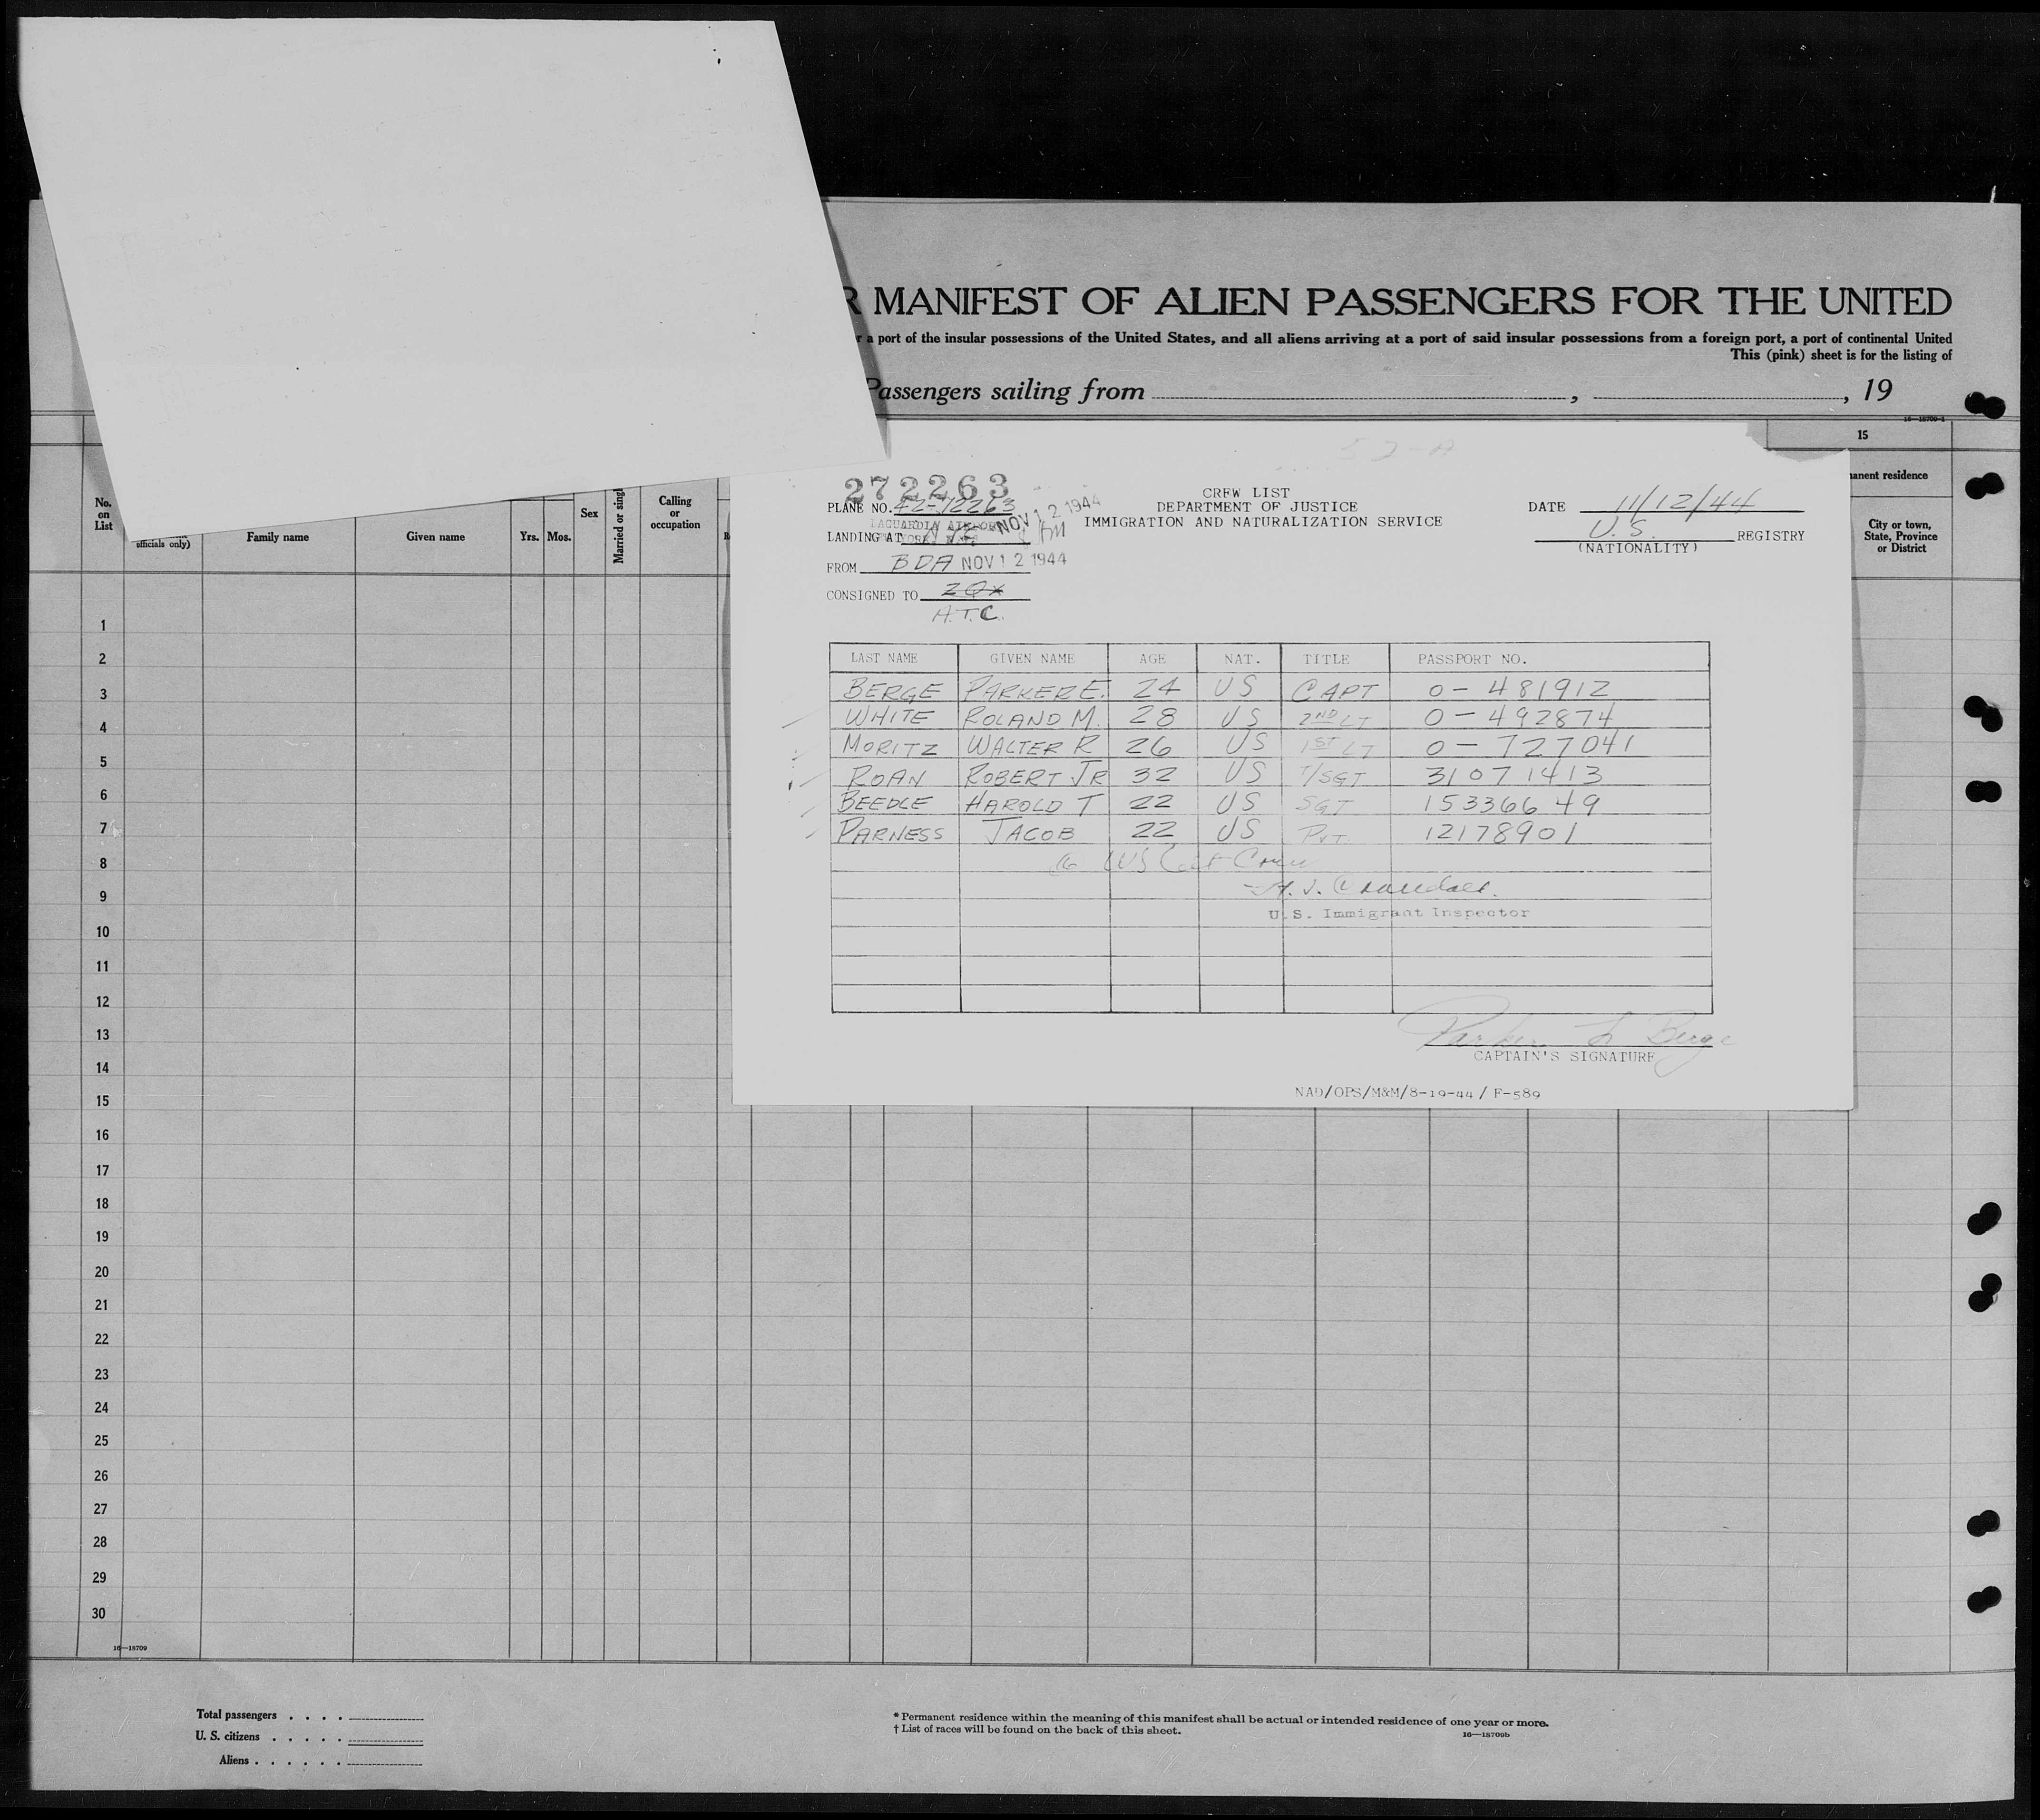 R MANIFEST OF ALIEN PASSENGERS FOR THE UNITED
r a port of the insular possessions of the United States, and all aliens arriving at a port of said insular possessions from a foreign port, a port of continental United
This (pink) sheet is for the listing of
Passengers sailing from , , 19
16—18709-1
15
manent residence
City or town, State, Province or District
No. on List
officials only)
Family name
Given name
Yrs. Mos.
Sex
Married or singl
Calling or occupation
272263
PLANE NO. 42-72263
CREW LIST
DEPARTMENT OF JUSTICE
IMMIGRATION AND NATURALIZATION SERVICE
DATE 11/12/44
U.S. REGISTRY
(NATIONALITY)
LAGUARDIA AIRPORT NOV 12 1944
LANDING AT
FROM BDA NOV 12 1944
CONSIGNED TO
A.T.C.
LAST NAME GIVEN NAME AGE NAT. TITLE PASSPORT NO.
BERGE PARKER E. 24 US CAPT O-481912
WHITE ROLAND M. 28 US 2ND LT O-492874
MORITZ WALTER R 26 US 1ST LT O-727041
ROAN ROBERT JR 32 US T/SGT 31071413
BEEDLE HAROLD T 22 US SGT 15336649
PARNESS JACOB 22 US PVT 12178901
U.S. Immigrant Inspector
CAPTAIN'S SIGNATURE
NAD/OPS/M&M/8-19-44/ F-589
1
2
3
4
5
6
7
8
9
10
11
12
13
14
15
16
17
18
19
20
21
22
23
24
25
26
27
28
29
30
16—18709
Total passengers . . . .
U. S. citizens . . . . .
Aliens . . . . . .
* Permanent residence within the meaning of this manifest shall be actual or intended residence of one year or more.
† List of races will be found on the back of this sheet.
16—18709b